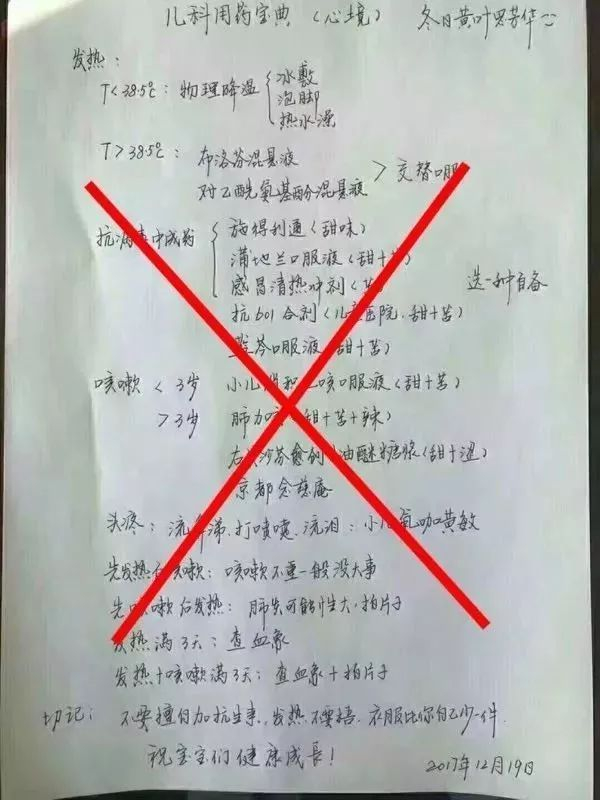 儿科用药宝典（心境） 冬日黄叶思芳华
发热：
T<38.5℃：物理降温 冰敷
泡脚
热水澡
T>38.5℃：布洛芬混悬液
对乙酰氨基酚混悬液 > 交替口服
抗病毒中成药 施得利通（甜味）
蒲地兰口服液（甜+苦）
感冒清热冲剂（苦） 选一种自备
抗601合剂（儿童医院.甜+苦）
芩口服液（甜+苦）
咳嗽 <3岁 小儿 积 咳口服液（甜+苦）
>3岁 肺力咳（甜+苦+辣）
右 沙芬愈创 油醚糖浆（甜+涩）
京都念慈庵
头疼：流鼻涕.打喷嚏.流泪：小儿氨咖黄敏
先发热后咳嗽：咳嗽不重一般没大事
先咳嗽后发热：肺炎可能性大，拍片子
发热满3天：查血象
发热+咳嗽满3天：查血象+拍片子
切记：不要擅自加抗生素，发热不要捂.衣服比你自己少一件.
祝宝宝们健康成長！
2017年12月19日